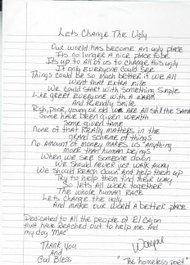 Lets Change The Ugly
Our world has become an ugly place
It's no longer a nice place to be
It's up to all of us to change this ugly
If only everyone could see
Things could be so much better if we all
Went that extra mile
We could start with something simple
Like greet everyone with a warm
And friendly smile
Rich, Poor, young or old we are all still the same
Some have been given wealth
Some given time
None of that really matters in the
grand scheme of things
No amount of money makes us anything
more than human beings
When we see someone down
We should never just walk away
We should reach down and help them up
Try to help them find their way
So lets all work together
The whole human race
Lets change the ugly
And make our world a better place
Dedicated to all the people of El Cajon
that have reached out to help me and
my dog "Mac"
Thank You
and
God Bless
"The homeless poet"